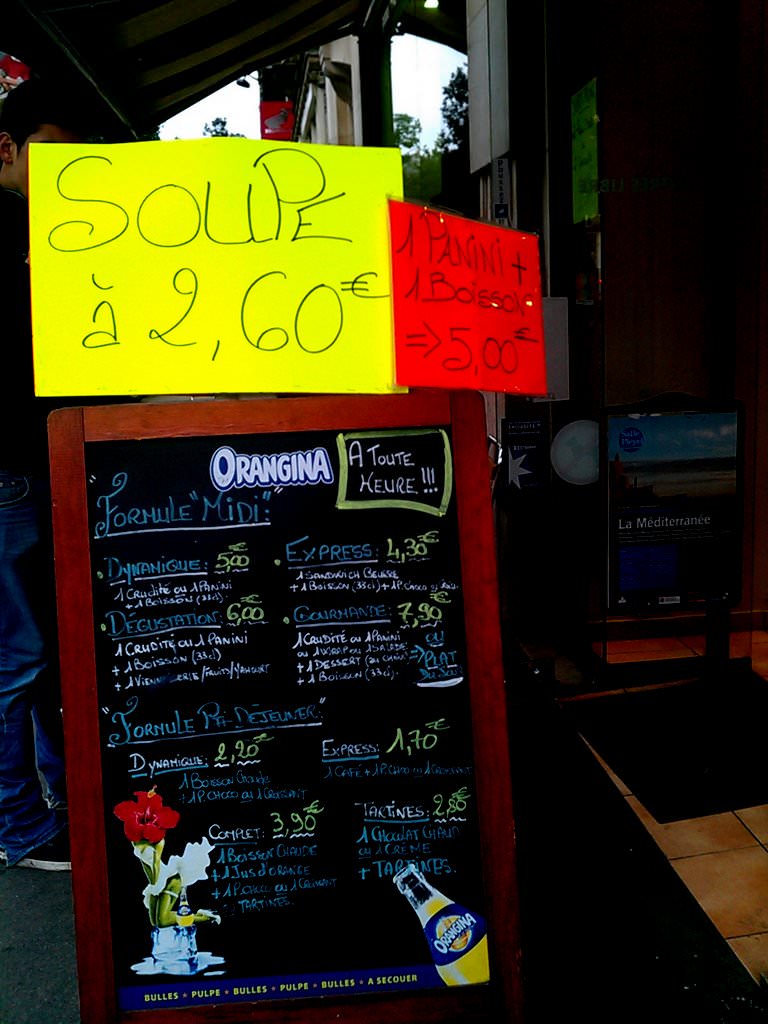 SOUPE
à 2,60€
1 PANINI +
1 BOISSON
=> 5,00€
ORANGINA
A TOUTE
HEURE !!!
"FORMULE "MIDI":
DYNAMIQUE: 5,00€
1 CRUDITÉ OU 1 PANINI
+ 1 BOISSON (33cl)
EXPRESS: 4,30€
1 SANDWICH BEURRE
+ 1 BOISSON (33cl) + 1 P. CHOCO
DEGUSTATION: 6,00€
1 CRUDITÉ OU 1 PANINI
+ 1 BOISSON (33cl)
+ 1 VIENNOISERIE/FRUITS/YAHOURT
GOURMANDE: 7,90€
1 CRUDITÉ OU 1 PANINI
OU 1 WRAP OU 1 SALADE
+ 1 DESSERT (AU CHOIX)
+ 1 BOISSON (33cl).
OU
=> PLAT
DU JOUR
"FORMULE Ptt-DÉJEUNER:"
DYNAMIQUE: 2,20€
1 BOISSON CHAUDE
+ 1 P. CHOCO OU 1 CROISSANT
EXPRESS: 1,70€
1 CAFÉ + 1 P. CHOCO OU 1 CROISSANT
COMPLET: 3,90€
1 BOISSON CHAUDE
+ 1 JUS D'ORANGE
+ 1 P. CHOCO OU 1 CROISSANT
TARTINES.
TARTINES: 2,80€
1 CHOCOLAT CHAUD
OU 1 CRÈME
+ TARTINES.
ORANGINA
BULLES ★ PULPE ★ BULLES ★ PULPE ★ BULLES ★ A SECOUER
Salle
Pleyel
La Méditerranée